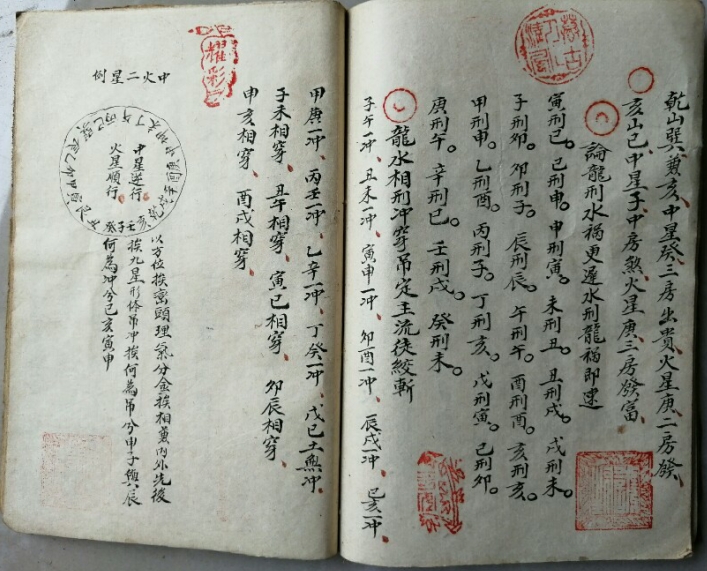 乾山巽兼亥中星癸三房出貴火星庚二房發
亥山巳中星子中房煞火星庚三房發富
論龍刑水禍更遲水刑龍禍即速
寅刑巳。巳刑申。申刑寅。未刑丑。丑刑戌。戌刑未。
子刑卯。卯刑子。辰刑辰。午刑午。酉刑酉。亥刑亥。
甲刑申。乙刑酉。丙刑子。丁刑亥。戊刑寅。己刑卯。
庚刑午。辛刑巳。壬刑戌。癸刑未。
龍水相刑冲穿吊定主流徒絞斬
子午一冲 丑未一冲 寅申一冲 卯酉一冲 辰戌一冲 巳亥一冲
甲庚一冲 丙壬一冲 乙辛一冲 丁癸一冲 戊己土無冲
子未相穿 丑午相穿 寅巳相穿 卯辰相穿
申亥相穿 酉戌相穿
耀彩
中火二星例
中星逆行
火星順行
以方位挨巒頭理氣分金挨相兼內外先後
挨九星形体吊冲挨何為吊兮申子與辰
何為冲兮巳亥寅申